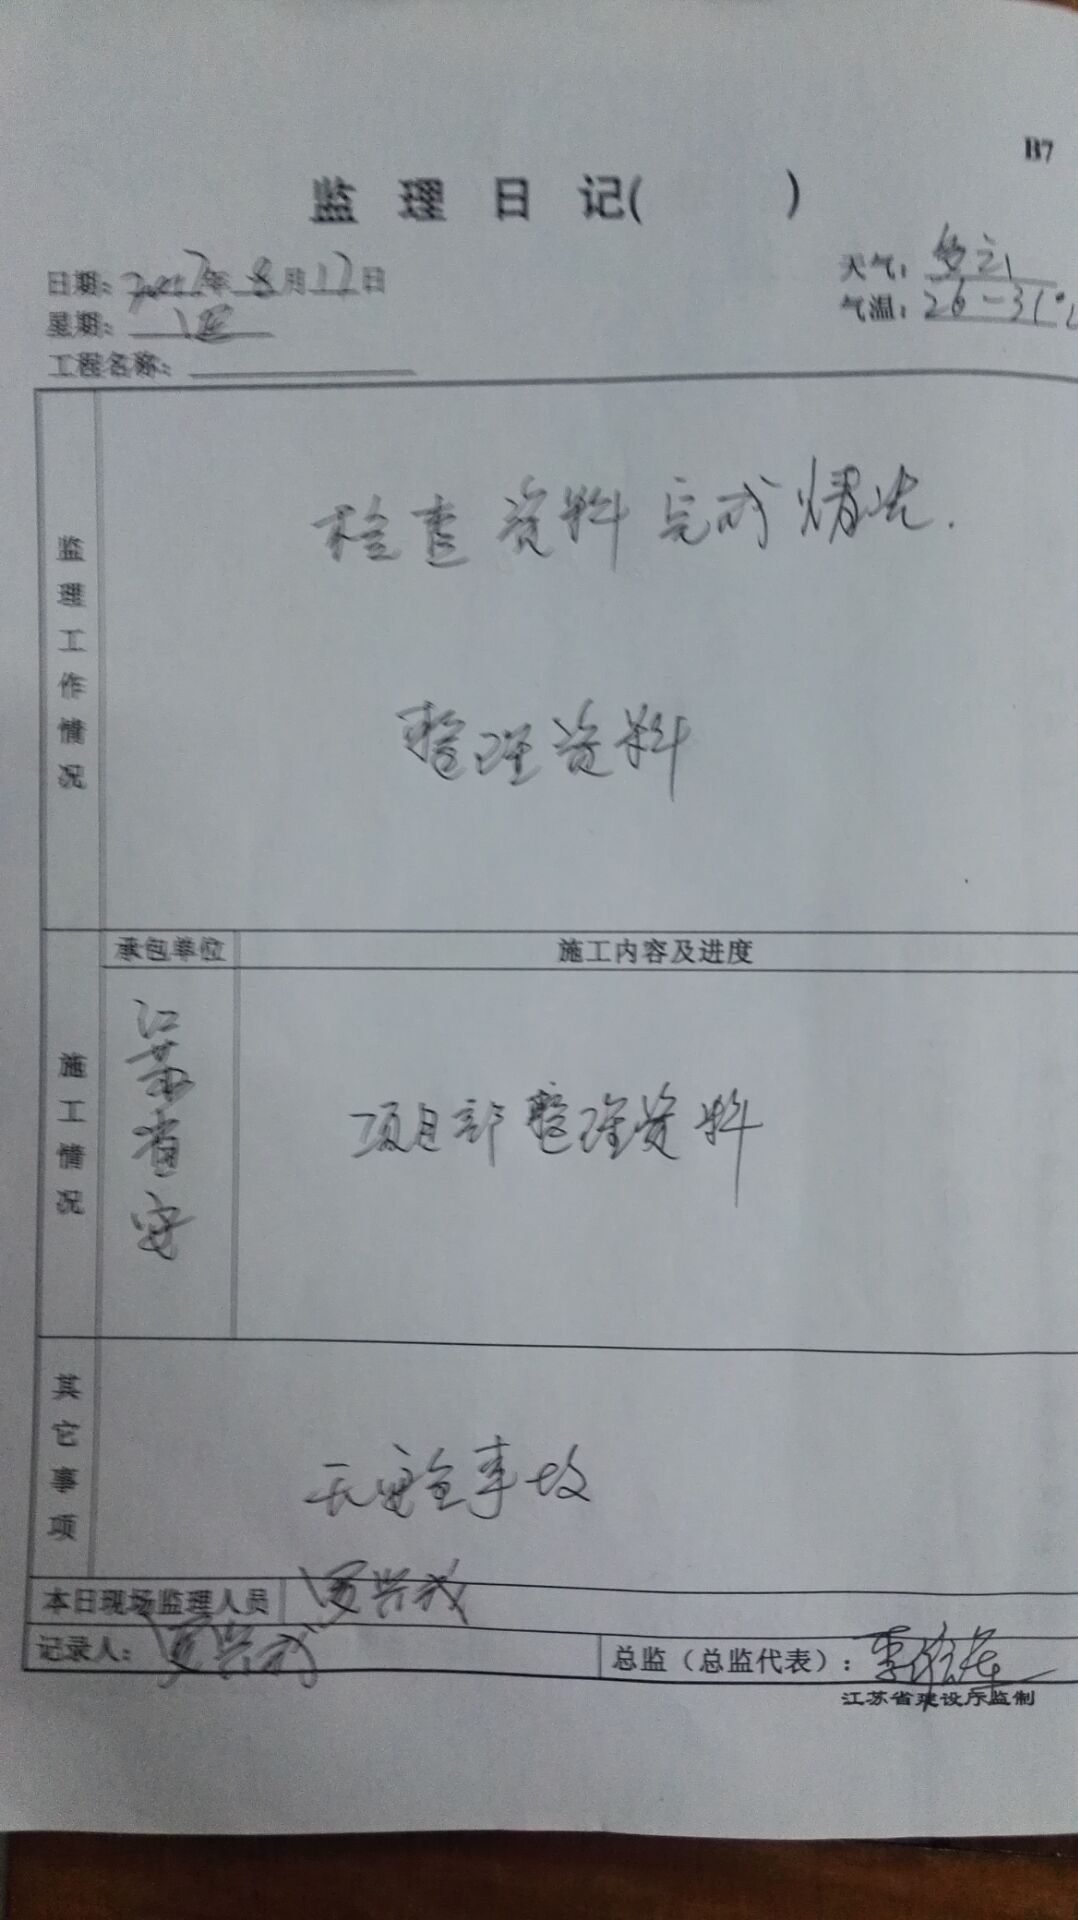 B7
监理日记( )
日期：2017年8月17日
天气：多云
星期：
气温：26-31℃
工程名称：
监理工作情况
检查资料完成情况.
整理资料
承包单位
施工内容及进度
施工情况
江苏省安
项目部整理资料
其它事项
无安全事故
本日现场监理人员
记录人：
总监（总监代表）：
江苏省建设厅监制